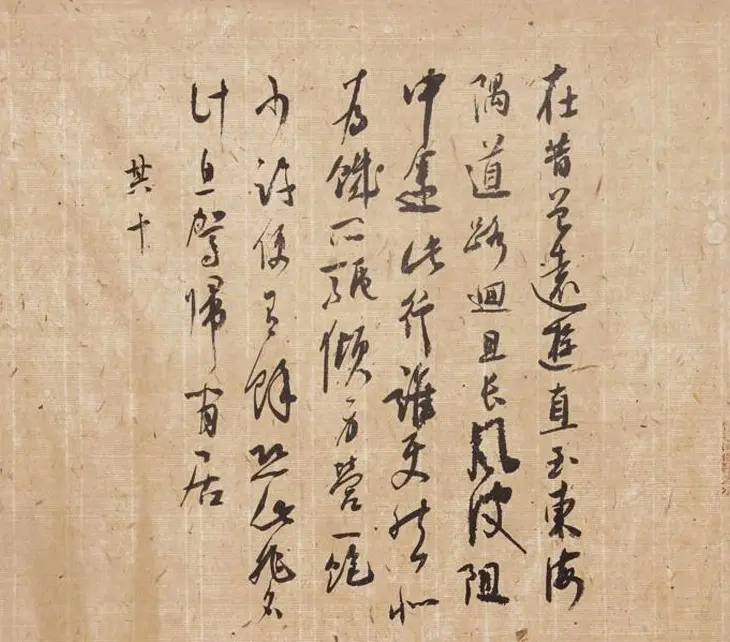 在昔曾遠遊直至東海
隅道路迴且長風波阻
中途此行誰使然似
為飢所驅傾身營一飽
少許便有餘恐此非名
計息駕歸閒居
其十